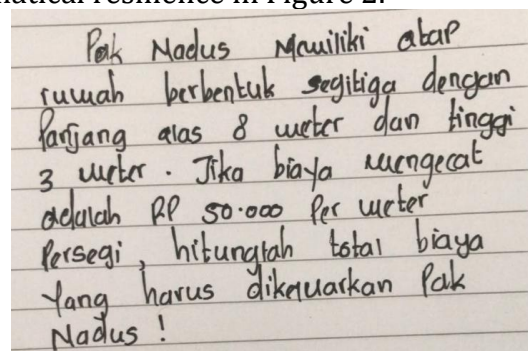 matical resilience in Figure 2.
Pak Nadus Memiliki atap
rumah berbentuk segitiga dengan
Panjang alas 8 meter dan tinggi
3 meter. Jika biaya mengecat
adalah RP 50.000 Per meter
Persegi, hitunglah total biaya
Yang harus dikeluarkan Pak
Nadus!